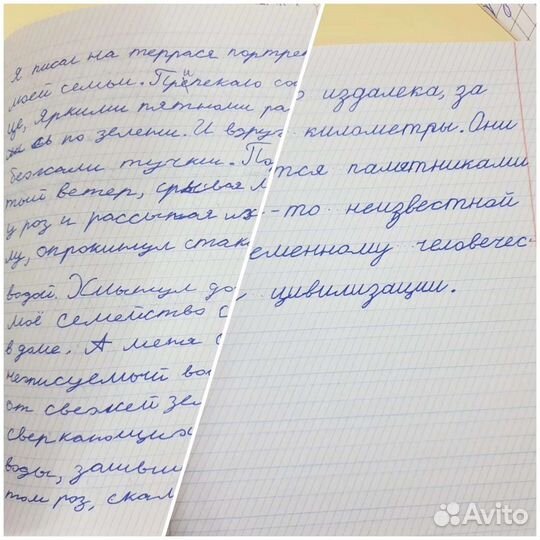 Я писал на террасе портрет
моей семьи. Припекало со
це, яркими пятнами ра
сь по зелени. И вдруг
бежали тучки. По
тый ветер, срывая л
у роз и рассыпая их
лу, опрокинул стак
водой. Хлынул до
моё семейство с
в доме. А меня
неописуемый во
от свежей зел
сверкающих
воды, залив
том роз, скам
о издалека, за
километры. Они
тся памятниками
-то неизвестной
еменному человечес-
цивилизации.
Avito